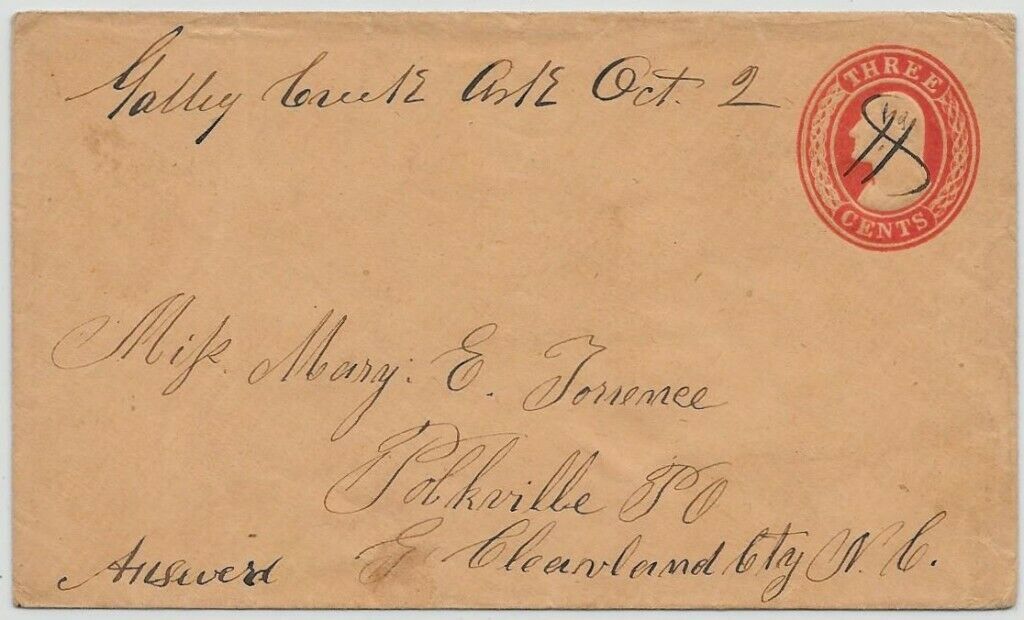 Galley Creek Ark Oct. 2
THREE
CENTS
Miſs. Mary. E. Torrence
Polkville PO
Cleavland Cty N. C.
Answerd